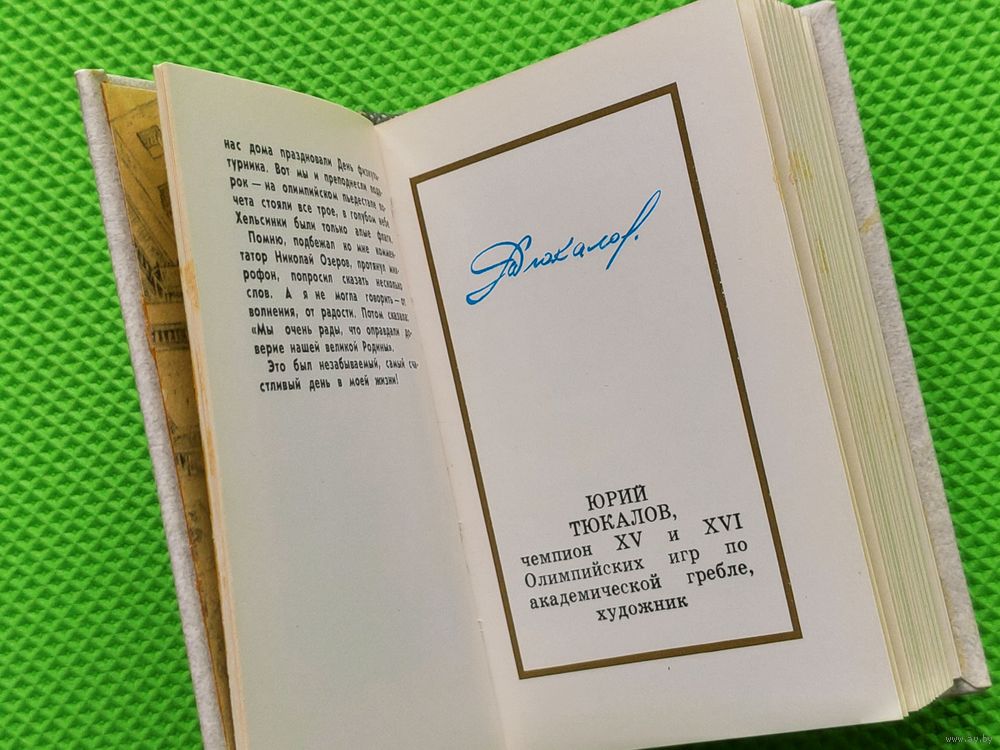 нас дома праздновали День физкуль-
турника. Вот мы и преподнесли пода-
рок — на олимпийском пьедестале по-
чета стояли все трое, в голубом небе
Хельсинки были только алые флаги.
Помню, подбежал ко мне коммен-
татор Николай Озеров, протянул мик-
рофон, попросил сказать несколько
слов. А я не могла говорить — от
волнения, от радости. Потом сказала:
«Мы очень рады, что оправдали до-
верие нашей великой Родины».
Это был незабываемый, самый сча-
стливый день в моей жизни!
Ю Тюкалов.
ЮРИЙ
ТЮКАЛОВ,
чемпион XV и XVI
Олимпийских игр по
академической гребле,
художник
www.av.by